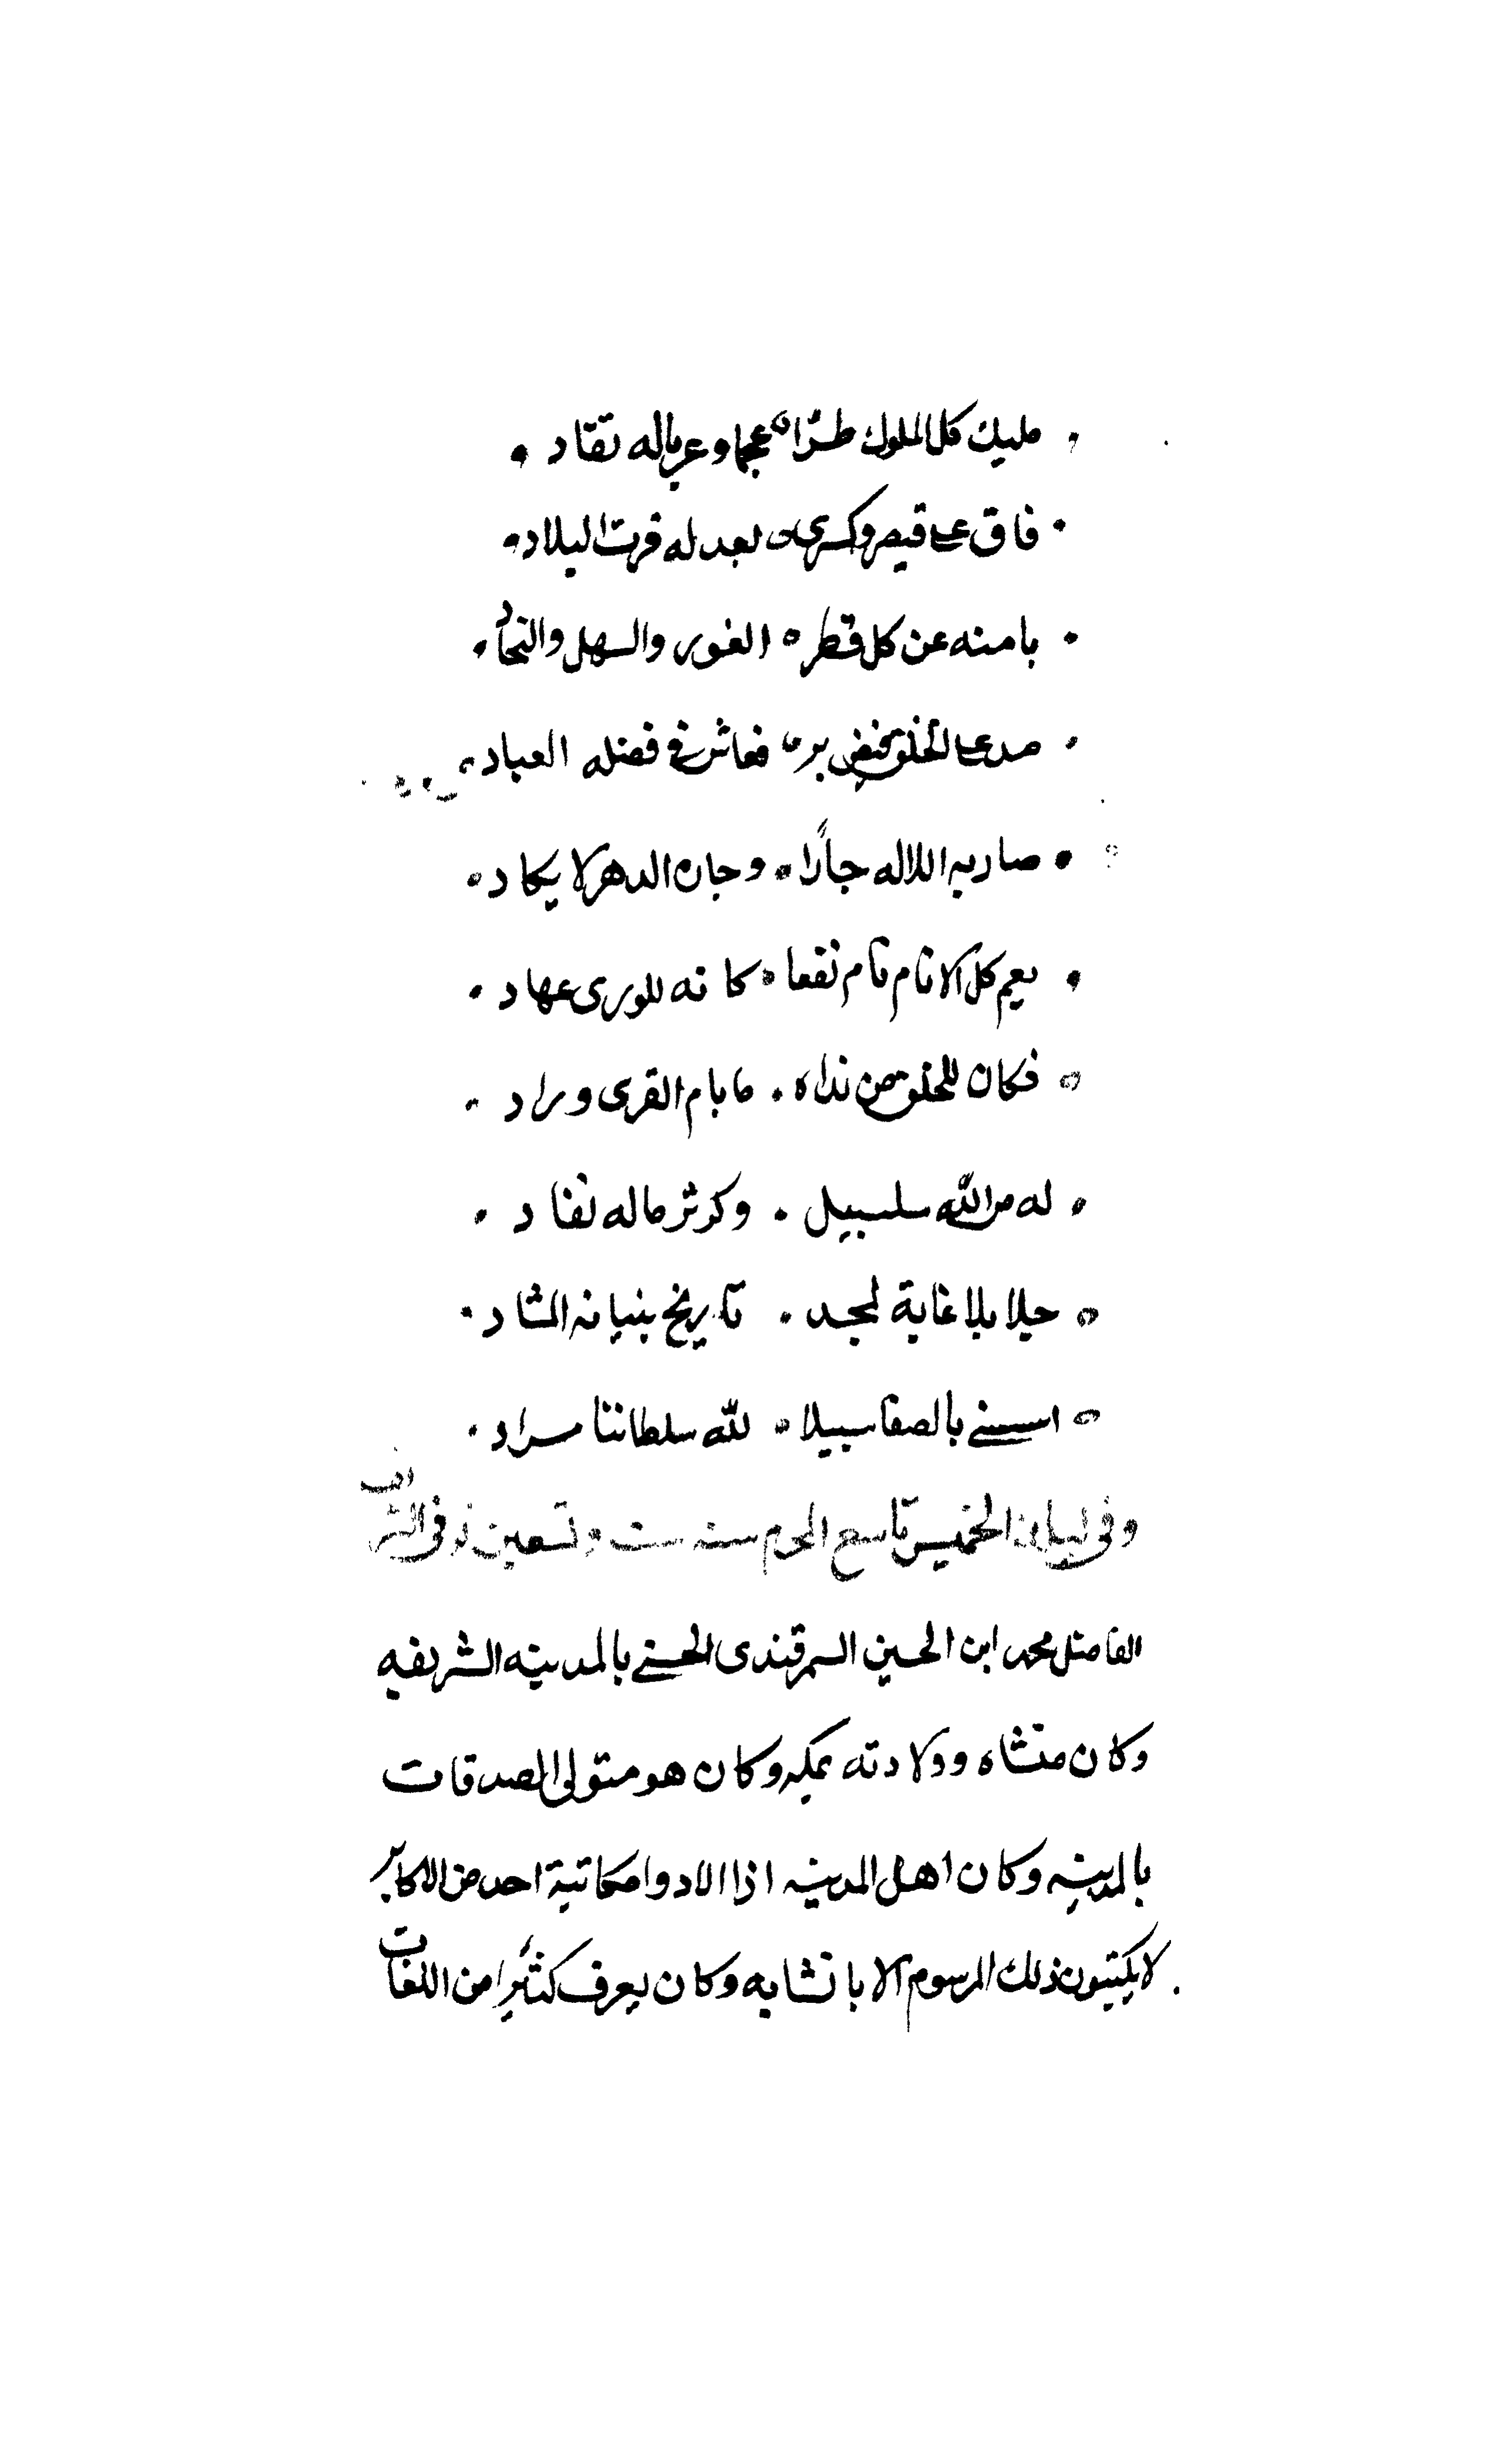 مليك كل الملوك طرّا عجما وعربا له تقاد
فاق على قيصر وكسرى لعدله قرت البلاد
بامنه عن كل قطر الغور والسهل والنجاد
مد على الخلق بر فعاش في فضله العباد
صار به اللاله جارًا وجار الدهر لا يكاد
يعم كل الانام نفعا كانه للورى عهاد
فكان للخلق من نداه ما بام القرى وراد
له من الله سلسبيل وكوثر ماله نفاد
حلا بلا غاية لمجد تاريخ بنيانه المشاد
اسسنى بالصفا سبيلا لله سلطاننا مراد
وفي ليلة الخميس تاسع المحرم سنة ست وتسعين توفي الشريف
الفاضل محمد ابن الحسين السمرقندى الحسنى بالمدينه الشريفه
وكان منشاه وولادته بمكه وكان هو متولى الصدقات
بالمدينه وكان اهل المدينه اذا الادوا مكاتبة احد من الاكابر
لا يكتبون ذلك المرسوم الا بانشايه وكان يعرف كثيرا من اللغات